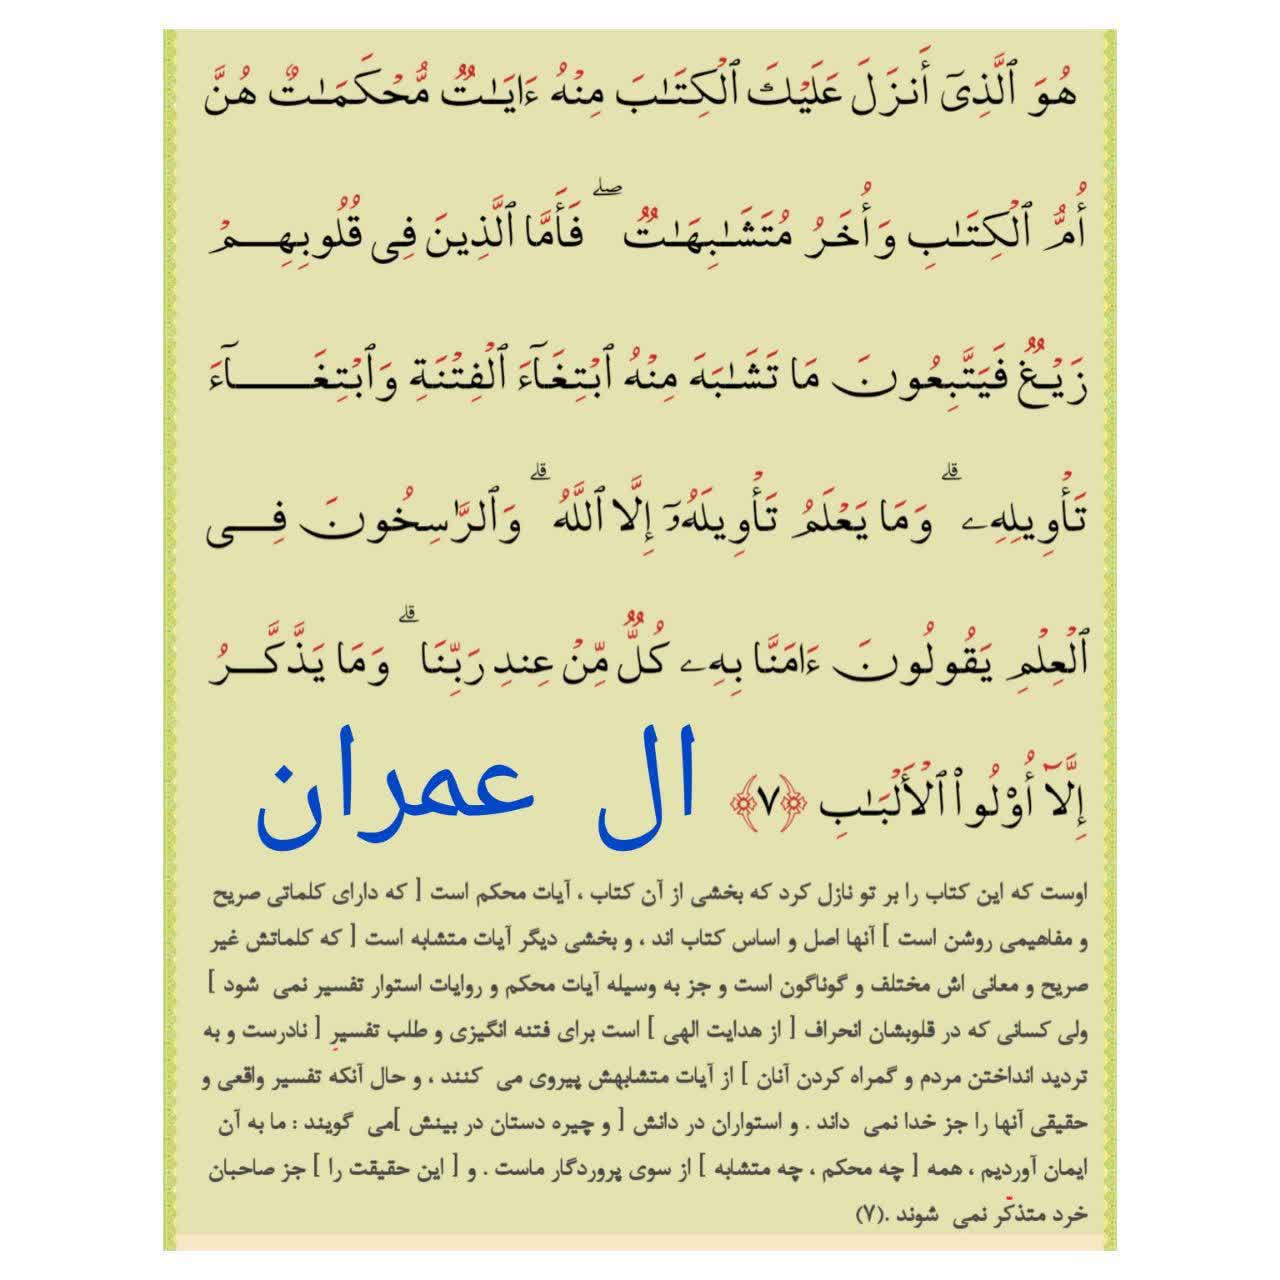 هُوَ ٱلَّذِىٓ أَنزَلَ عَلَيْكَ ٱلْكِتَـٰبَ مِنْهُ ءَايَـٰتٌ مُّحْكَمَـٰتٌ هُنَّ
أُمُّ ٱلْكِتَـٰبِ وَأُخَرُ مُتَشَـٰبِهَـٰتٌ ۖ فَأَمَّا ٱلَّذِينَ فِى قُلُوبِهِمْ
زَيْغٌ فَيَتَّبِعُونَ مَا تَشَـٰبَهَ مِنْهُ ٱبْتِغَآءَ ٱلْفِتْنَةِ وَٱبْتِغَآءَ
تَأْوِيلِهِۦ ۗ وَمَا يَعْلَمُ تَأْوِيلَهُۥٓ إِلَّا ٱللَّهُ ۗ وَٱلرَّٰسِخُونَ فِى
ٱلْعِلْمِ يَقُولُونَ ءَامَنَّا بِهِۦ كُلٌّ مِّنْ عِندِ رَبِّنَا ۗ وَمَا يَذَّكَّرُ
إِلَّآ أُو۟لُوا۟ ٱلْأَلْبَـٰبِ ﴿٧﴾ ال عمران
اوست که این کتاب را بر تو نازل کرد که بخشی از آن کتاب ، آیات محکم است [ که دارای کلماتی صریح
و مفاهیمی روشن است ] آنها اصل و اساس کتاب اند ، و بخشی دیگر آیات متشابه است [ که کلماتش غیر
صریح و معانی اش مختلف و گوناگون است و جز به وسیله آیات محکم و روایات استوار تفسیر نمی شود ]
ولی کسانی که در قلوبشان انحراف [ از هدایت الهی ] است برای فتنه انگیزی و طلب تفسیرِ [ نادرست و به
تردید انداختن مردم و گمراه کردن آنان ] از آیات متشابهش پیروی می کنند ، و حال آنکه تفسیر واقعی و
حقیقی آنها را جز خدا نمی داند . و استواران در دانش [ و چیره دستان در بینش ]می گویند : ما به آن
ایمان آوردیم ، همه [ چه محکم ، چه متشابه ] از سوی پروردگار ماست . و [ این حقیقت را ] جز صاحبان
خرد متذکّر نمی شوند .(٧)